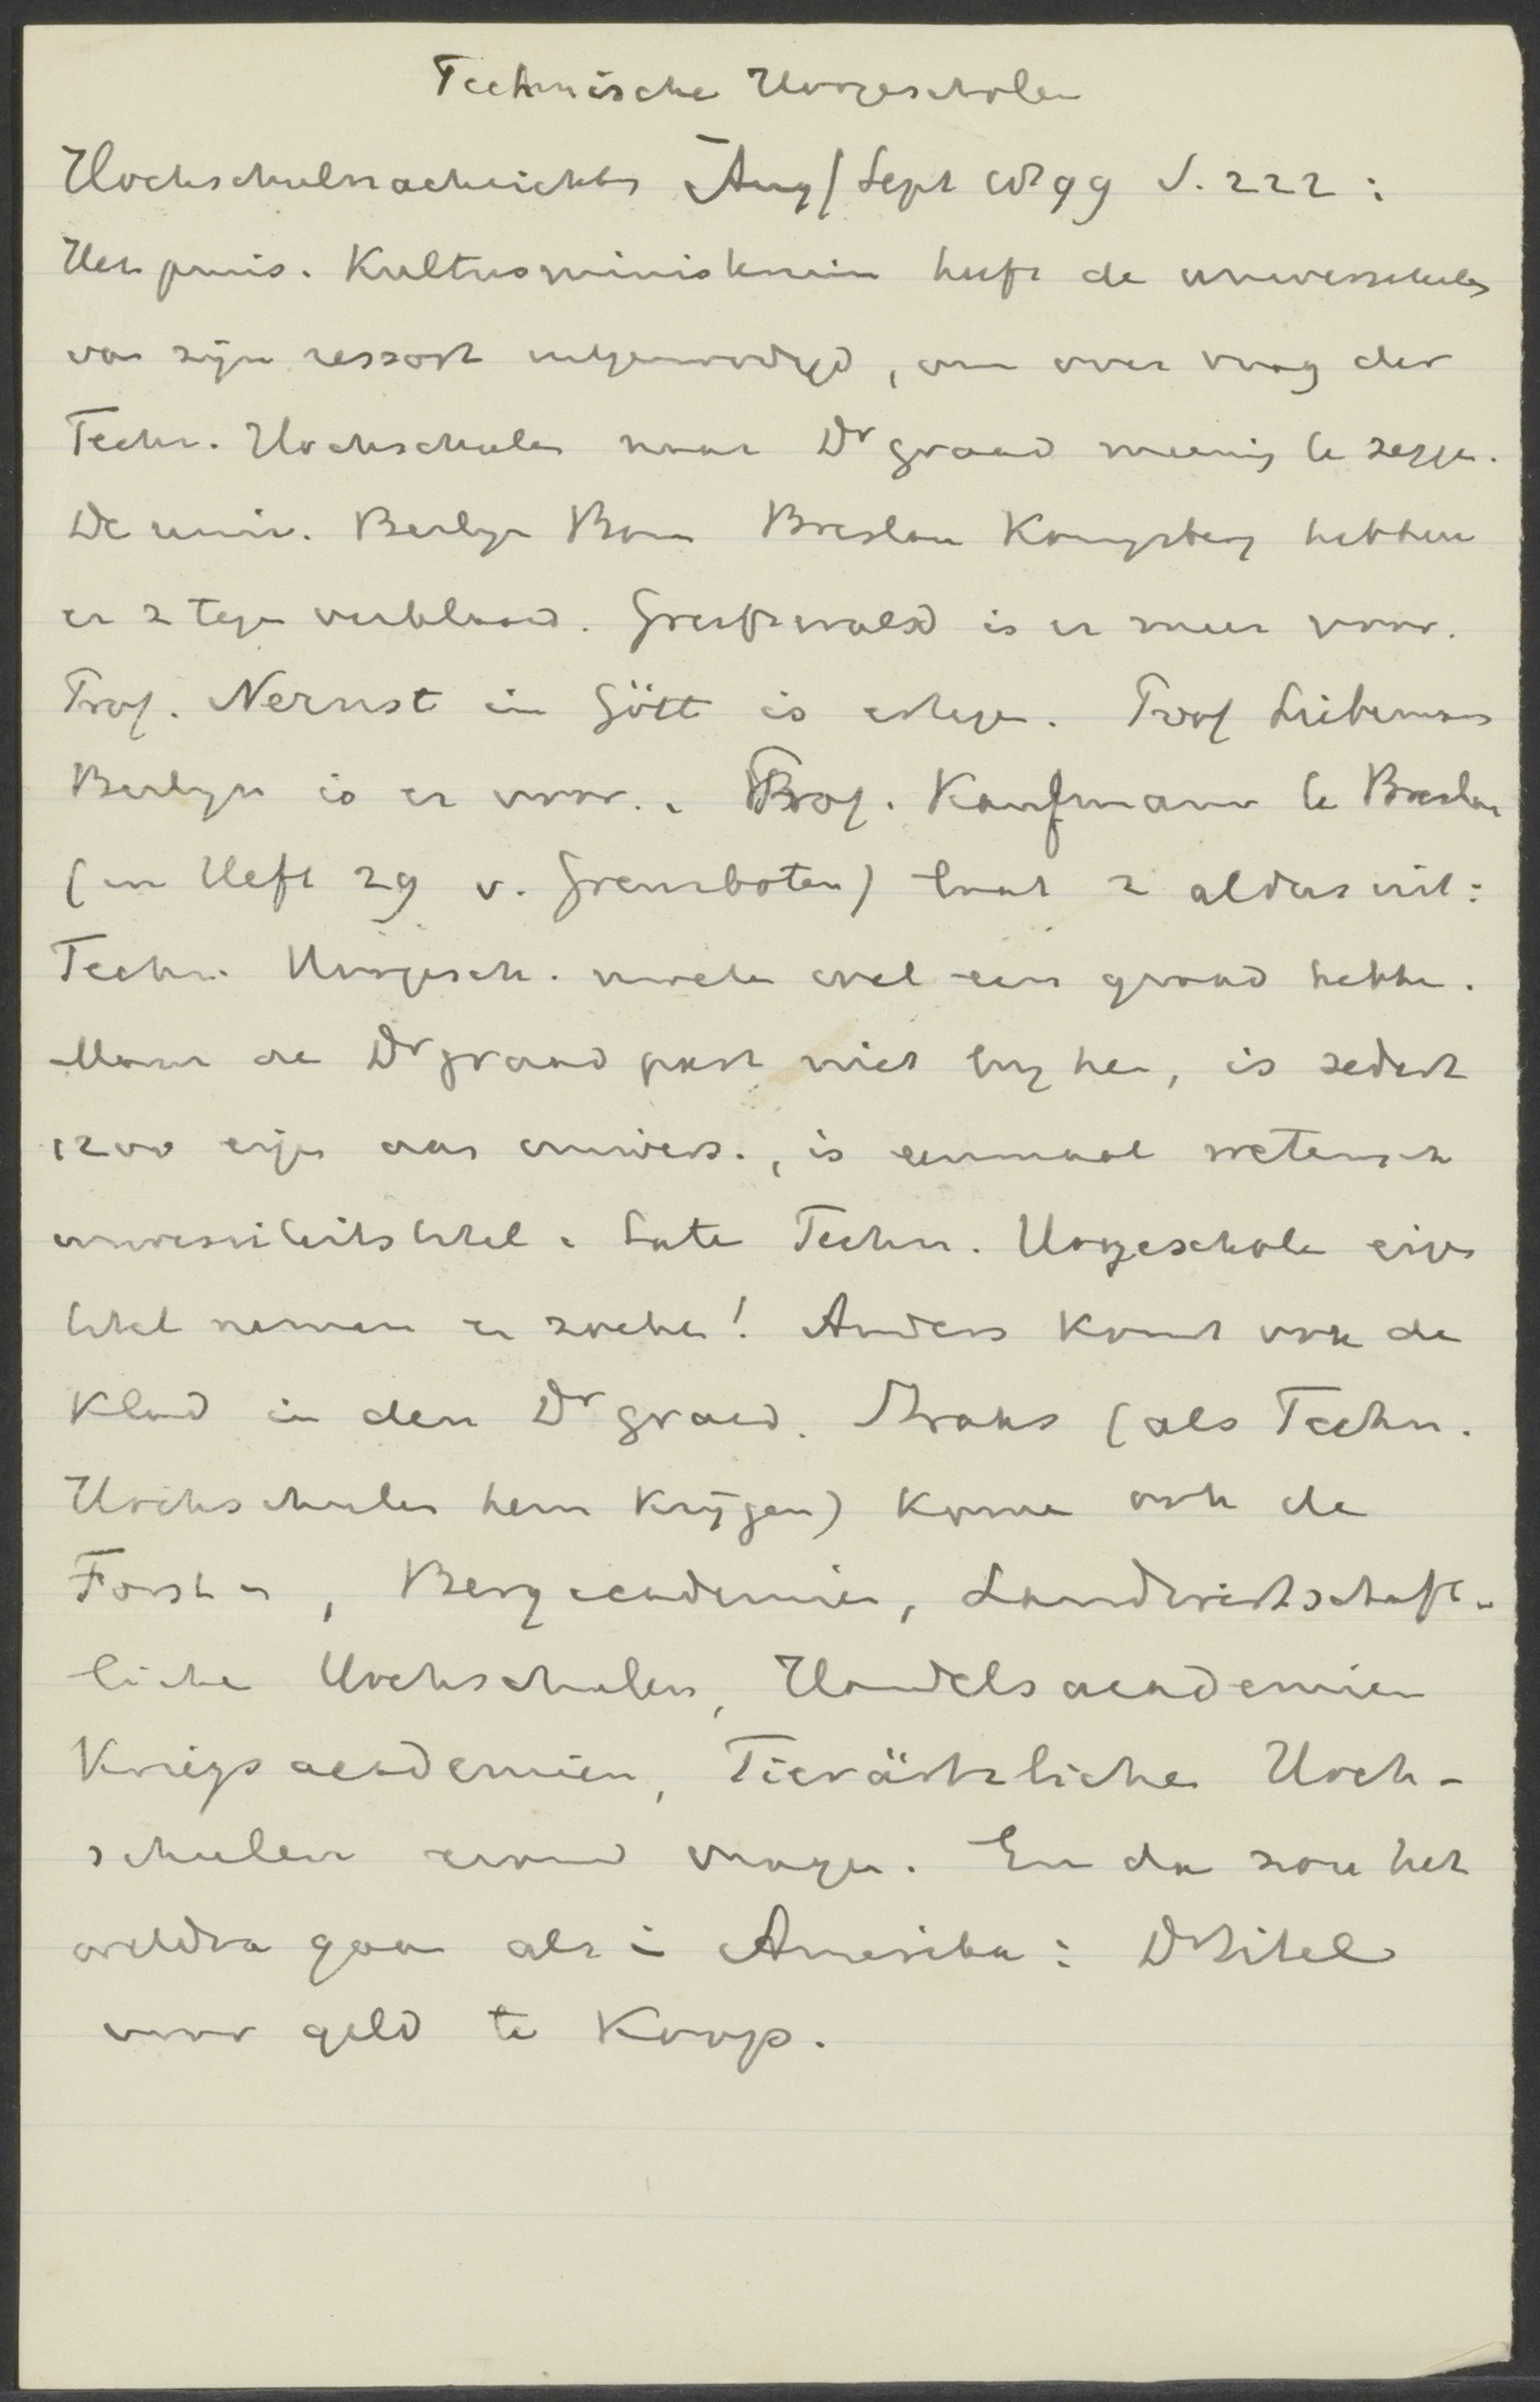 Technische Hoogescholen
Hochschulnachrichten Aug/Sept 1899 S. 222:
Het pruis. Kultusministerium heeft de universiteiten
van zijn ressort uitgenoodigd, om over vraag der
Techn. Hochschulen naar Dr graad meening te zeggen.
De univ. Berlyn Bonn Breslau Koningsberg hebben
er z tegen verklaard. Greifswald is er meer voor.
Prof. Nernst in Gött is ertegen. Prof Liebermann
Berlyn is er voor. Prof. Kaufmann te Breslau
(in Heft 29 v. Grenzboten) laat z aldus uit:
Techn. Hoogesch. moeten wel een graad hebben.
Maar de Dr graad past niet by hen, is sedert
1200 eigen aan univers., is eenmaal wetensch
universiteitstitel. Laten Techn. Hoogescholen eigen
titel nemen en zoeken! Anders komt ook de
klad in den Dr graad. Straks (als Techn.
Hochschulen hem krijgen) komen ook de
Forst-, Bergacademien, Landwirthschaft-
liche Hochschulen, Handelsacademien
Kriegsacademien, Tierärtzliche Hoch-
schulen erom vragen. En dan zou het
weldra gaan als in Amerika: Drtitel
voor geld te koop.